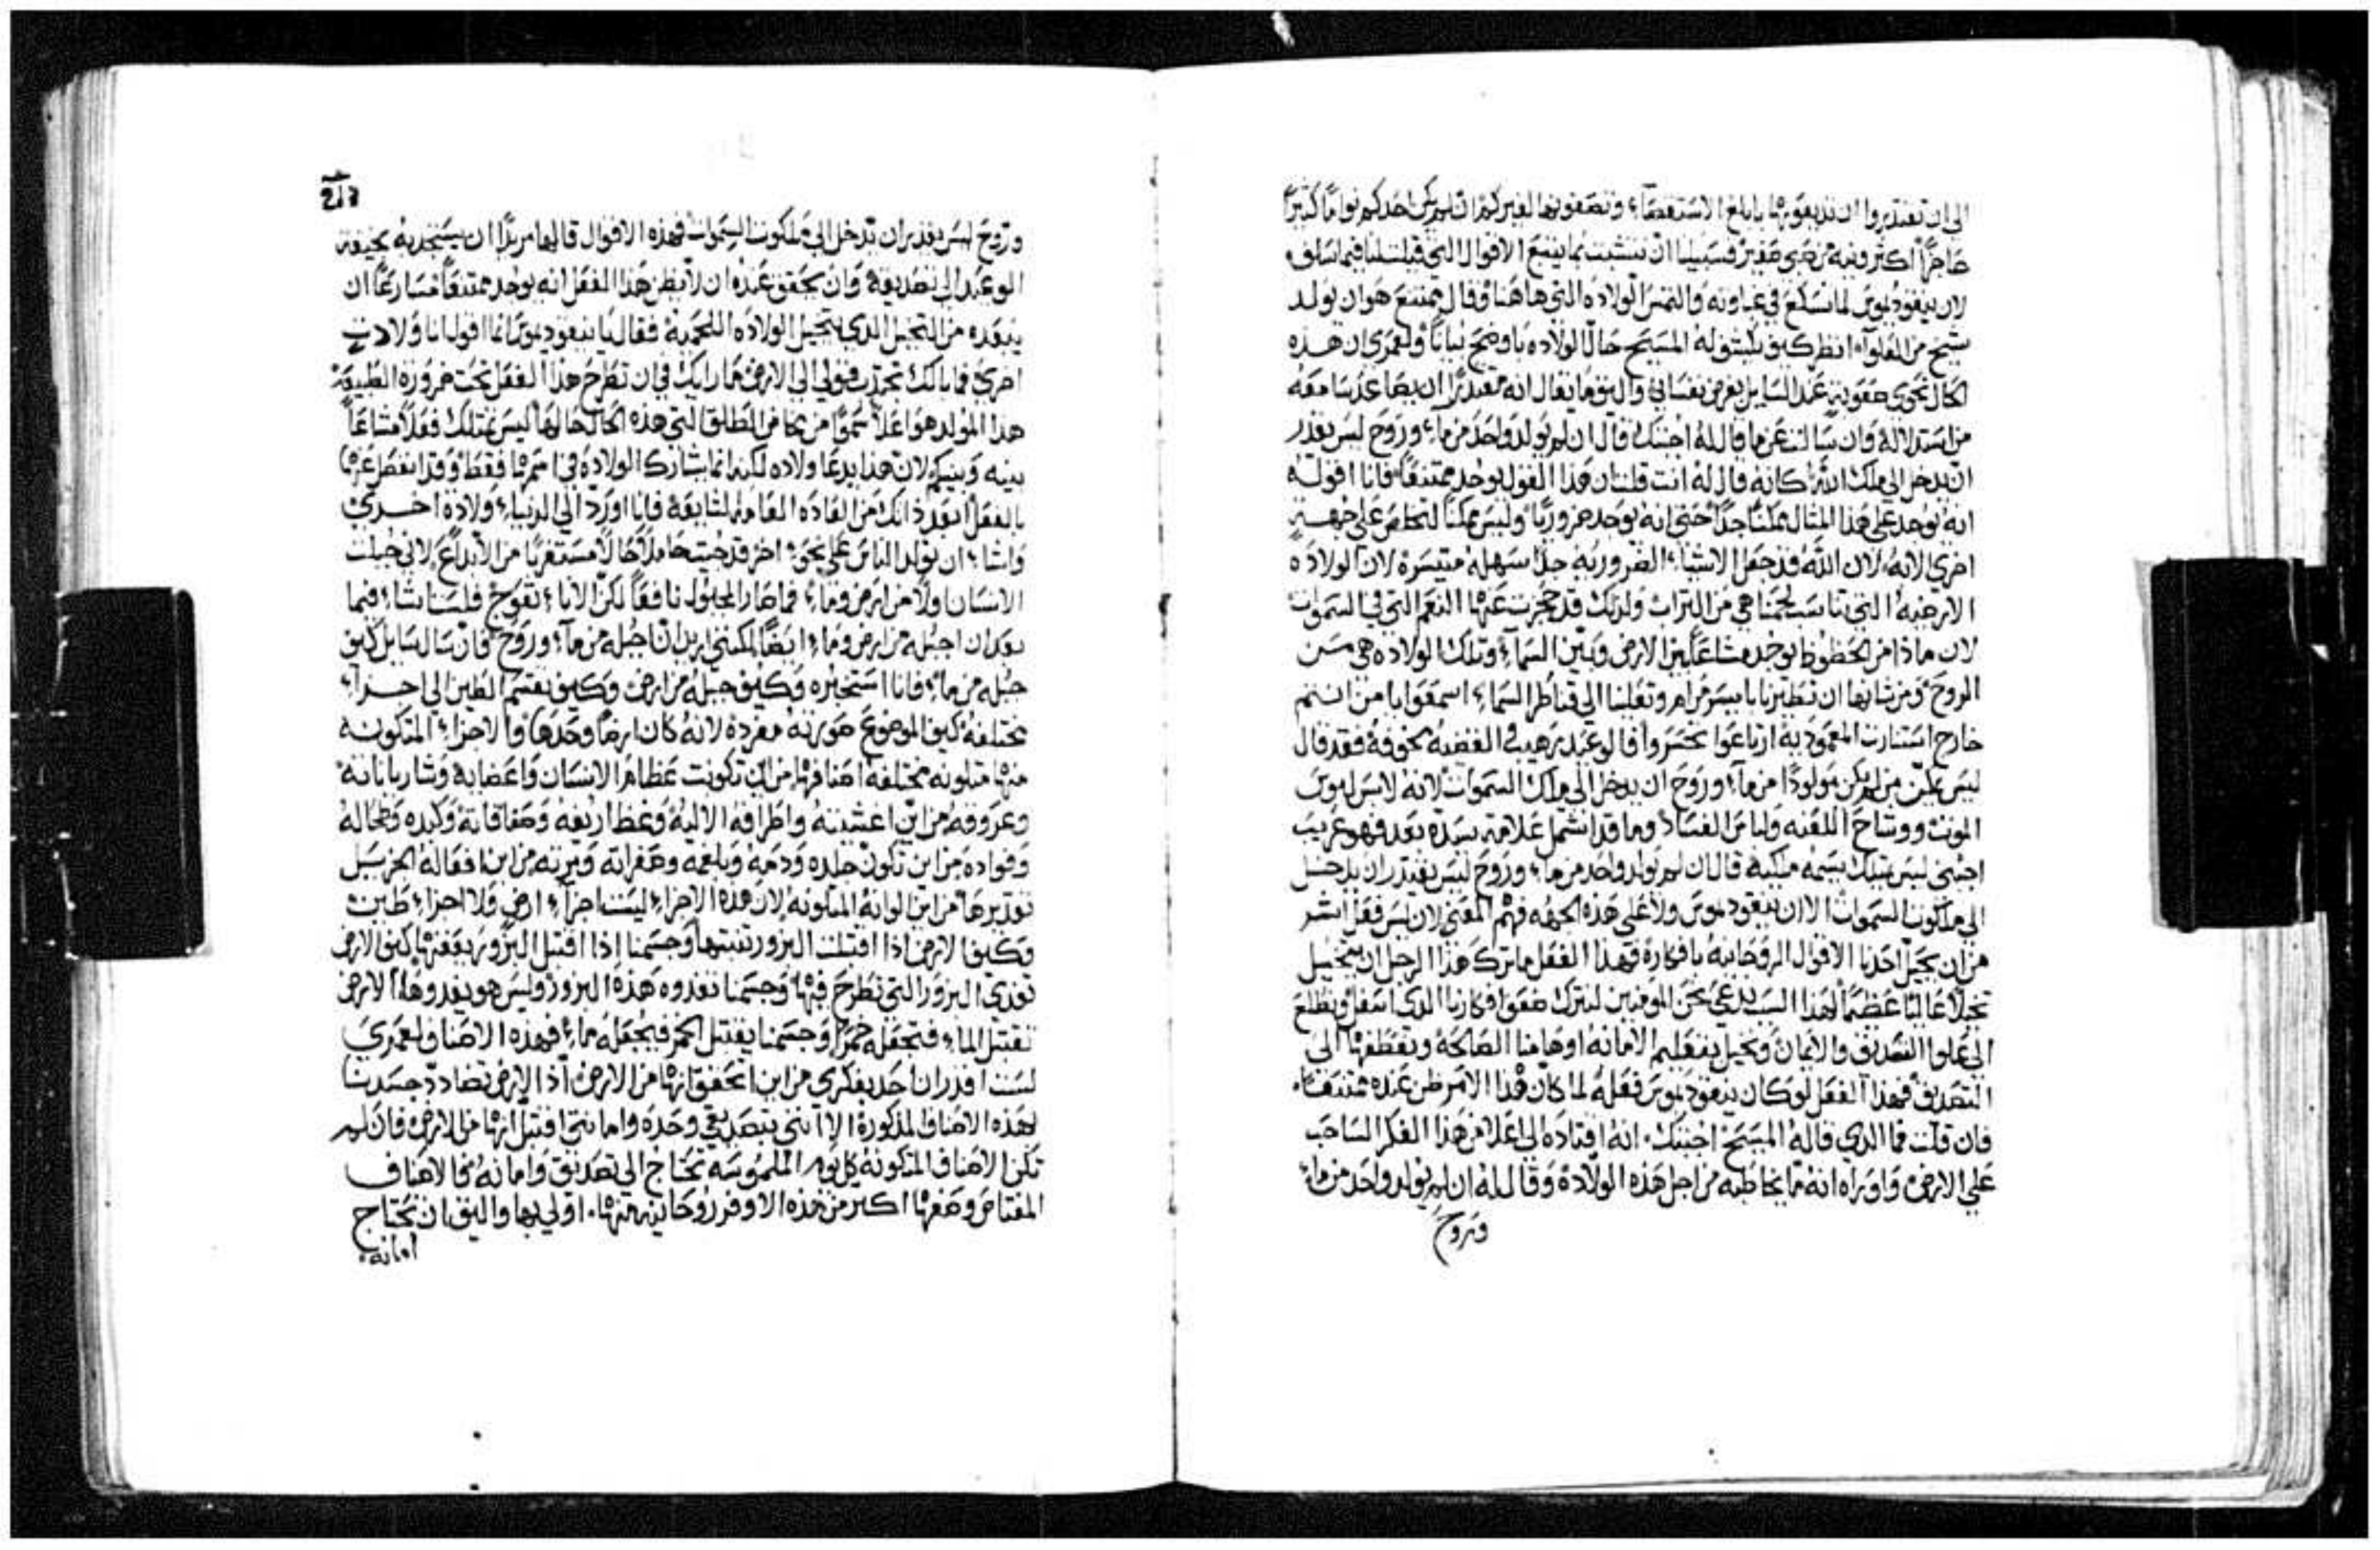 الى ان تقتدروا ان تديعوها بابلغ الاستقصاء وتصفونها لغيركم ان لم يكن احدكم نواما كثيرا
عاجزا اكثر وفيه من صبي صغير فسبيلنا ان نتشبت بما يتبع الاقوال التي قيلت لنا فيما سلف
لان نيقوديموس لما تسكع في غباوته والتمس الولاده التي هاهنا وقال ممتنع هو ان يولد
شيخ من الغلوآء انظر كيف يكشف له المسيح حال الولاده باوضح بيانا ولعمري ان هذه
الحال تحوي صعوبه عند السايل بغرض نفساني واليق ما يقال انه مقتدرا ان يصاعد سامعه
من استدلاله وان سالت عن ما قال له اجبتك قال ان لم يولد واحد من ماء وروح ليس يقدر
ان يدخل الى ملك الله كانه قال له انت قلت ان هذا القول يوجد ممتنعا فانا اقول
انه يوجد على هذا المثال ممكنا جدا حتى انه يوجد ضروريا وليس ممكنا التخلص على جهه
اخرى الا به لان الله قد جعل الاشياء الضروريه جدا سهله متيسره لان الولاده
الارضيه التي تناسب لحمنا هي من التراب ولذلك قد حجزت عنها النعم التي في السموات
لان ماذا من الحظوظ يوجد مشاعا بين الارض وبين السماء وتلك الولاده هي من
الروح ومن شانها ان تطيرنا بايسر مرام وتعلينا الى قناطر السماء اسمعوا يا من انتم
خارج استنارت المعموديه ارتاعوا تحسروا فالوعيد رهيب القضيه مخوفه فقد قال
ليس يمكن من لم يكن مولودا من ماء وروح ان يدخل الى ملك السموات لانه لابس لبوس
الموت ووشاح اللعنه ولباس الفساد وما قد اشتمل علامه سيده بعد فهو غريب
اجنبي ليس يمتلك سمه ملكيه قال ان لم يولد واحد من ماء وروح ليس يقتدر ان يدخل
الى ملكوت السموات الا ان نيقوديموس ولا على هذه الجهه فهم المعنى لان ليس فعل اشر
من ان يحيل احدنا الاقوال الروحانيه بافكاره فهذا الفعل ما ترك هذا الرجل ان يتخيل
تخيلا عاليا عظيما لهذا السبب ندعى نحن المومنين لنترك ضعف افكارنا الذي اسفل ونطلع
الى علو التصديق والايمان وتخيل بفعلهم الامانه اوهامنا الصالحه ونعطفها الى
التصديق فهذا الفعل لو كان نيقوديموس فعله لما كان هذا الامر ظن عنده ممتنعا
فان قلت فما الذي قاله المسيح اجبتك انه اقتاده الى اعلا من هذا الفكر الساحب
على الارض واوراه انه ما يخاطبه من اجل هذه الولاده وقال له ان لم يولد واحد من ماء
وروح
وروح ليس يقدر ان يدخل الى ملكوت السموات فهذه الاقوال قالها مريدا ان يستجذبه بخيفة
الوعيد الى تصديقه وان يحقق عنده ان لا يظن هذا الفعل انه يوجد ممتنعا مسارعا ان
يبعده من التخيل الذي يتخيل الولاده اللحميه فقال يا نيقوديموس انما اقول انا ولادت
اخرى فما بالك تجذب قولي الى الارض ما رايك في ان تطرح هذا الفعل تحت ضرورة الطبيعه
هذا المولد هو اعلا سموا من مخاض الطلق التي هذه الحال حالها ليس يمتلك فعلا مشاعا
بينه وبينكم لان هذا يدعا ولاده لكنه انما يشارك الولاده في اسمها فقط وقد انفصل عنها
بالفعل ابعد ذاتك من العاده العاميه الشايعه فانا اورد الى الدنياء ولادة اخرى
واشاء ان يولد الناس على نحو اخر قد جيت حاملا حالا مستغربا من الابداع لاني جبلت
الانسان اولا من ارض وماء فما صار المجبول نافعا لكن الاناء تعوج فلست اشاء فيما
بعد ان اجبله من ارض وماء ايضا لكنني اريد ان اجبله من ماء وروح فان سال سايل كيف
جبله من ماء فانا استخبره وكيف جبله من ارض وكيف تقسم الطين الى اجزاء
مختلفه كيف الموضوع صورته مفرده لانه كان ارضا وحدها والاجزاء المتكونه
منها متلونه مختلفه اصنافها من اين تكونت عظام الانسان واعصابه وشرياناته
وعروقه من اين اغشيته واطرافه الاليه وغضاريفه وصفاقاته وكبده وطحاله
وفواده من اين تكون جلده ودمه وبلغمه وصفراته ومرته من اين افعاله الجزيل
تقديرها من اين الوانه المتلونه لان هذه الاجزاء ليست اجزاء ارض ولا اجزاء طين
وكيف الارض اذا اقتبلت البزور تنبتها وجسمنا اذا اقتبل البزور يعفنها كيف الارض
تغدي البزور التي تطرح فيها وجسمنا تغدوه هذه البزور وليس هو يغدوها الارض
تقتبل الماء فتجعله خمرا وجسمنا يقتبل الخمر فيجعله ماء فهذه الاصناف لعمري
لست اقدر ان اجد بفكري من اين اتحقق انها من الارض اذ الارض تضادد جسدنا
لهذه الاصناف المذكورة الا انني بتصديقي وحده وامانتي اقتبل انها من الارض فان لم
تكن الاصناف المتكونه كل يوم الملموسه تحتاج الى تصديق وامانه فالاصناف
المعتاص وصفها اكتر من هذه الاوفر روحانيه منها اولى بها واليق ان تحتاج
امانه